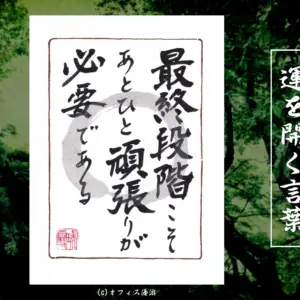 運を開く言葉
最終段階こそ
あとひと頑張りが
必要である
(c)オフィス湯沼